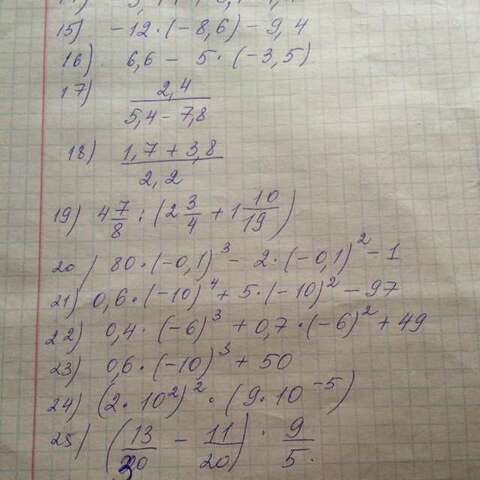 15) -12·(-8,6) - 9,4
16) 6,6 - 5·(-3,5)
17) 2,4 / (5,4 - 7,8)
18) (1,7 + 3,8) / 2,2
19) 4 7/8 : (2 3/4 + 1 10/19)
20) 80·(-0,1)³ - 2·(-0,1)² - 1
21) 0,6·(-10)⁴ + 5·(-10)² - 97
22) 0,4·(-6)³ + 0,7·(-6)² + 49
23) 0,6·(-10)³ + 50
24) (2·10²)²·(9·10⁻⁵)
25) (13/30 - 11/20)·9/5.